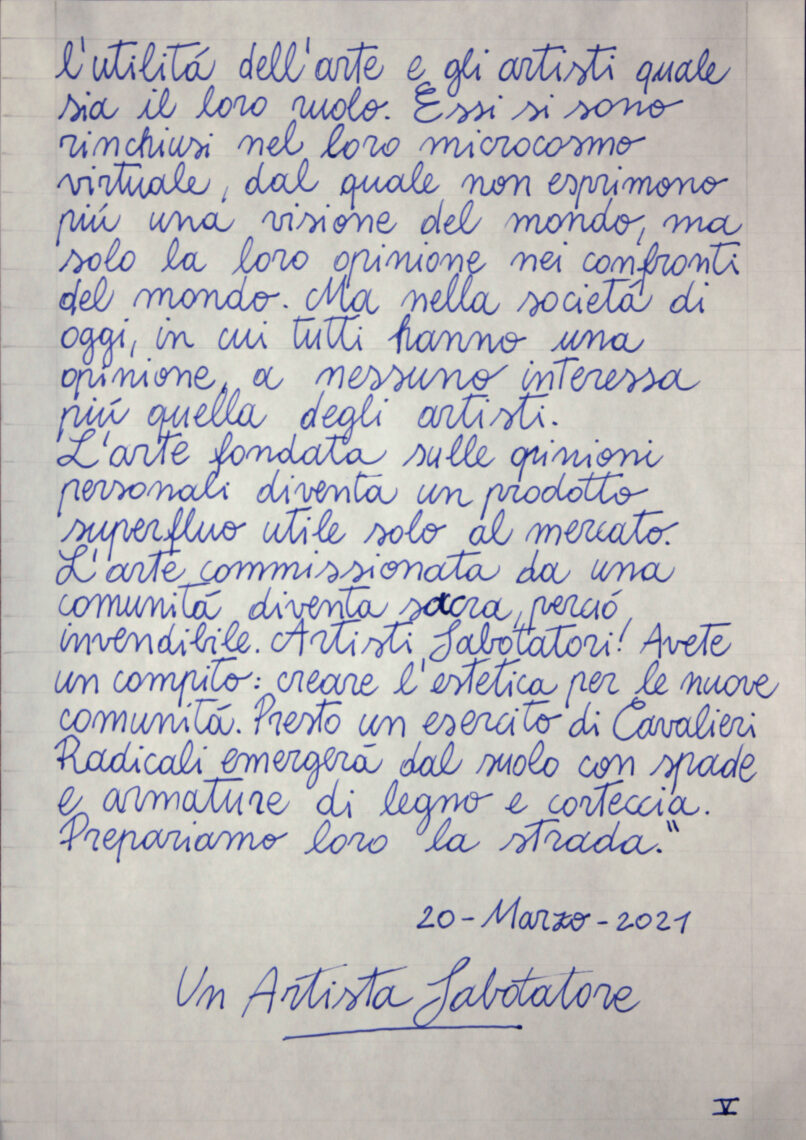 l'utilitá dell'arte e gli artisti quale
sia il loro ruolo. Essi si sono
rinchiusi nel loro microcosmo
virtuale, dal quale non esprimono
piú una visione del mondo, ma
solo la loro opinione nei confronti
del mondo. Ma nella societá di
oggi, in cui tutti hanno una
opinione, a nessuno interessa
piú quella degli artisti.
L'arte fondata sulle opinioni
personali diventa un prodotto
superfluo utile solo al mercato.
L'arte commissionata da una
comunitá diventa sacra, perció
invendibile. Artisti Sabotatori! Avete
un compito: creare l'estetica per le nuove
comunitá. Presto un esercito di Cavalieri
Radicali emergerá dal suolo con spade
e armature di legno e corteccia.
Prepariamo loro la strada."
20-Marzo-2021
Un Artista Sabotatore
V